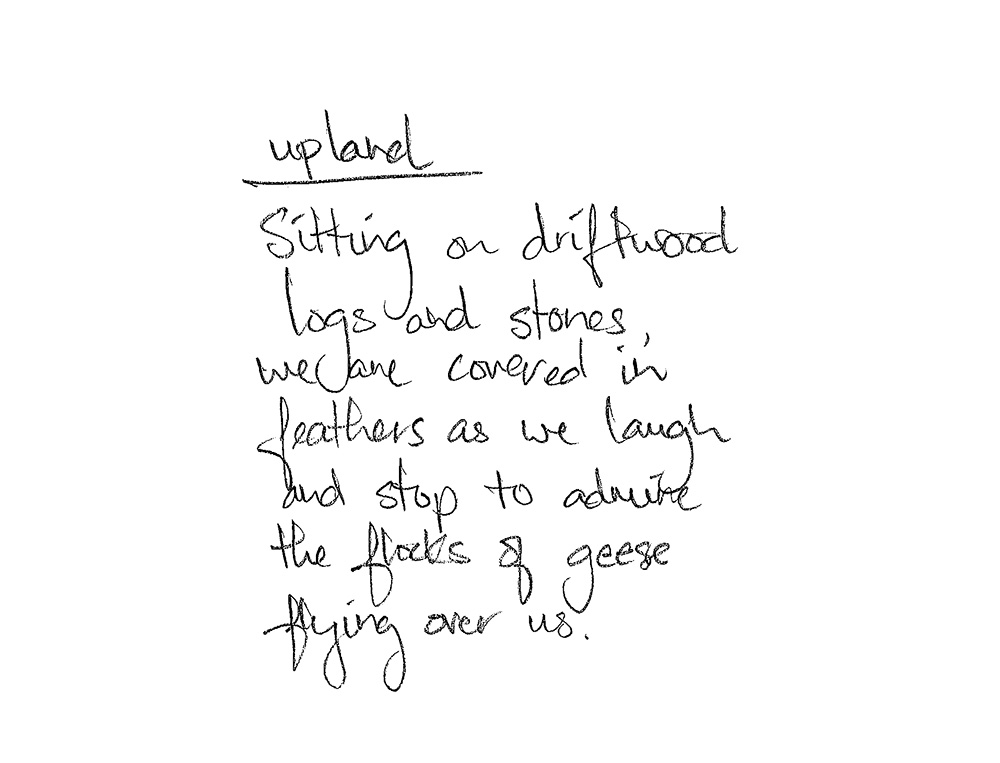 upland
Sitting on driftwood
logs and stones,
we are covered in
feathers as we laugh
and stop to admire
the flocks of geese
flying over us.